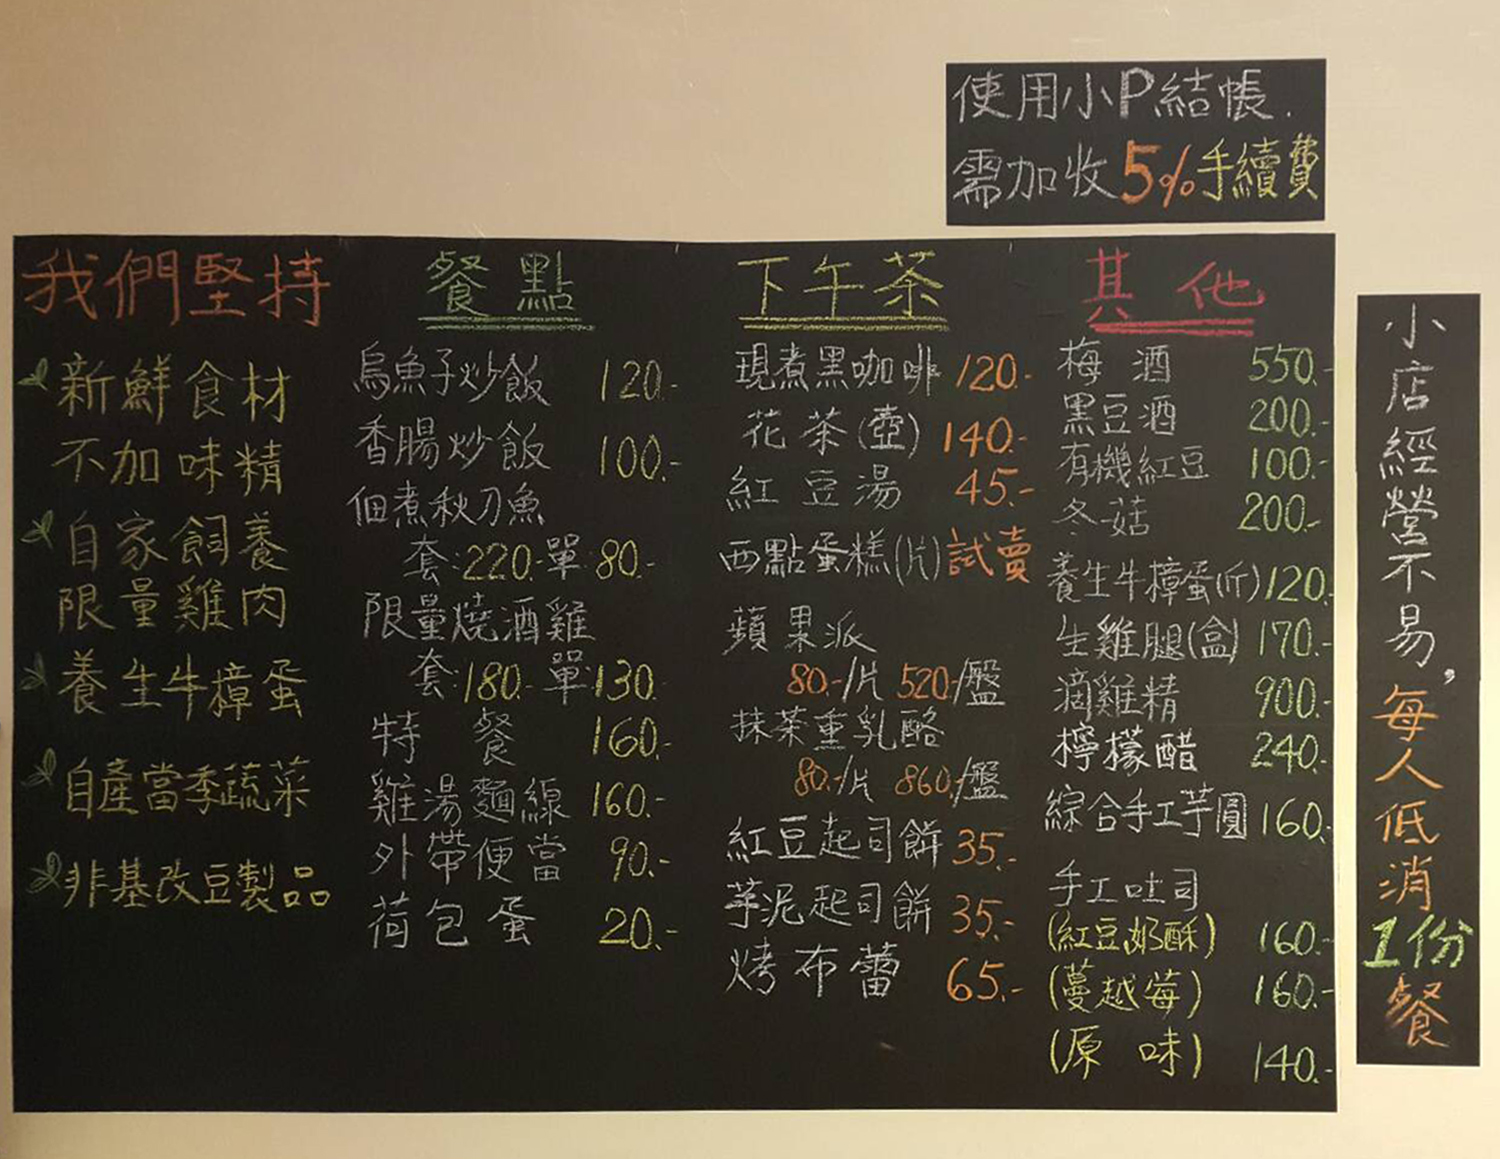 使用小P結帳.
需加收5%手續費
我們堅持
新鮮食材
不加味精
自家飼養
限量雞肉
養生牛樟蛋
自產當季蔬菜
非基改豆製品
餐點
烏魚子炒飯 120.-
香腸炒飯 100.-
佃煮秋刀魚
套:220.- 單:80.-
限量燒酒雞
套:180.- 單:130.
特餐 160.-
雞湯麵線 160.-
外帶便當 90.-
荷包蛋 20.-
下午茶
現煮黑咖啡 120.-
花茶(壺) 140.-
紅豆湯 45.-
西點蛋糕(片)試賣
蘋果派
80.-/片 520.-/盤
抹茶重乳酪
80.-/片 860.-/盤
紅豆起司餅 35.-
芋泥起司餅 35.-
烤布蕾 65.-
其他
梅酒 550.-
黑豆酒 200.-
有機紅豆 100.-
冬菇 200.-
養生牛樟蛋(斤) 120.-
生雞腿(盒) 170.-
滴雞精 900.-
檸檬醋 240.-
綜合手工芋圓 160.-
手工吐司
(紅豆奶酥) 160.-
(蔓越莓) 160.-
(原味) 140.-
小店經營不易,每人低消1份餐